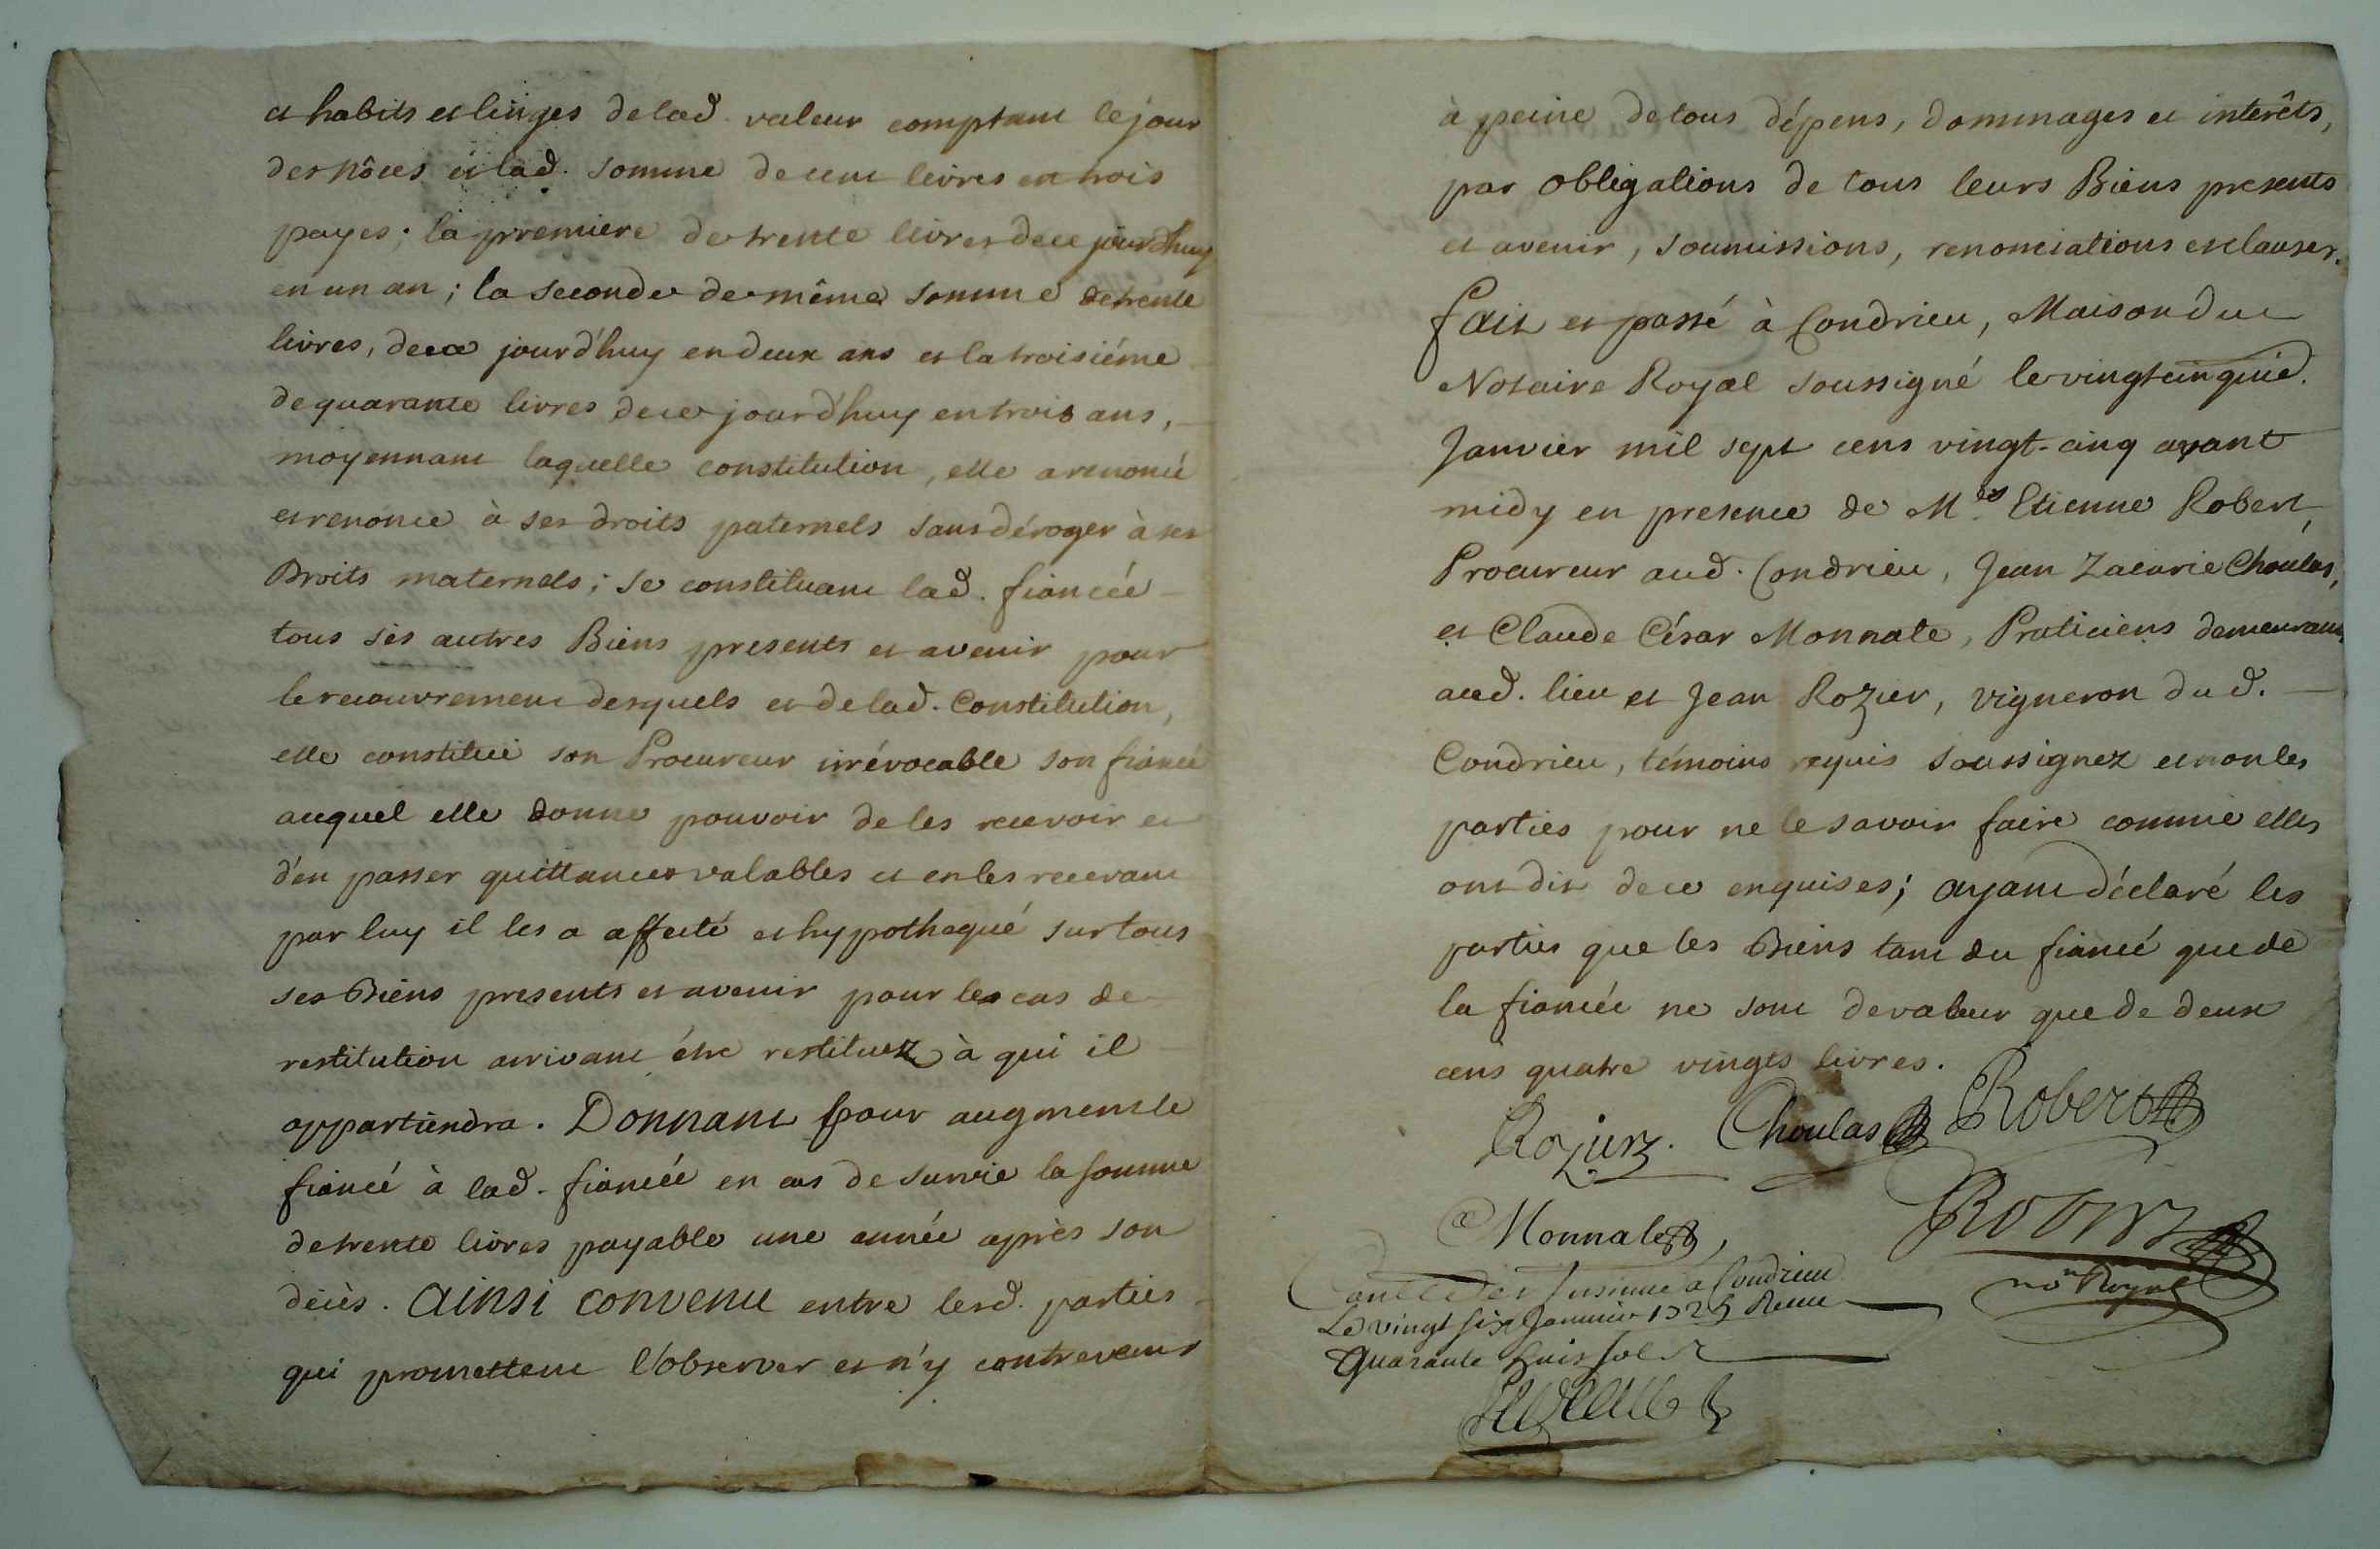 et habits et linges de lad. valeur comptant le jour
des nôces et lad. somme de cent livres en trois
payes; la premiere de trente livres de ce jourd'huy
en un an; la seconde de même somme de trente
livres, de ce jourd'huy en deux ans et la troisiéme
de quarante livres de ce jourd'huy en trois ans,
moyennant laquelle constitution, elle a renoncé
et renonce à ses droits paternels sans déroger à ses
Droits maternels; se constituant lad. fiancée
tous ses autres Biens presents et avenir pour
le recouvrement desquels et de lad. Constitution,
elle constitue son Procureur irrévocable son fiancé
auquel elle donne pouvoir de les recevoir et
d'en passer quittances valables et en les recevant
par luy il les a affecté et hypothequé sur tous
ses Biens presents et avenir pour les cas de
restitution arrivant étre restituez à qui il
appartiendra. Donnant pour augment le
fiancé à lad. fiancée en cas de survie la somme
de trente livres payable une année après son
décès. Ainsi convenu entre lesd. parties
qui promettent l'observer et n'y contrevenir
à peine de tous dépens, dommages et interêts,
par obligations de tous leurs Biens presents
et avenir, soumissions, renonciations et clauses.
fait et passé à Condrieu, Maison du
Notaire Royal soussigné le vingt cinquié.
Janvier mil sept cens vingt-cinq avant
midy en presence de M.es Etienne Robert,
Procureur aud. Condrieu, Jean Zacarie Choulas,
et Claude César Monnate, Praticiens demeurants
aud. lieu et Jean Rozier, vigneron dud.
Condrieu, témoins requis soussignez et non les
parties pour ne le savoir faire comme elles
ont dit de ce enquises; ayant déclaré les
parties que les Biens tant du fiancé que de
la fiancée ne sont de valeur que de deux
cens quatre vingts livres.
Rozier. Choulas Robert
Monnate,
no.re Royal
Controllé et Insinué a Condrieu
Le vingt six Janvier 1725 Receu
quarante huit sols